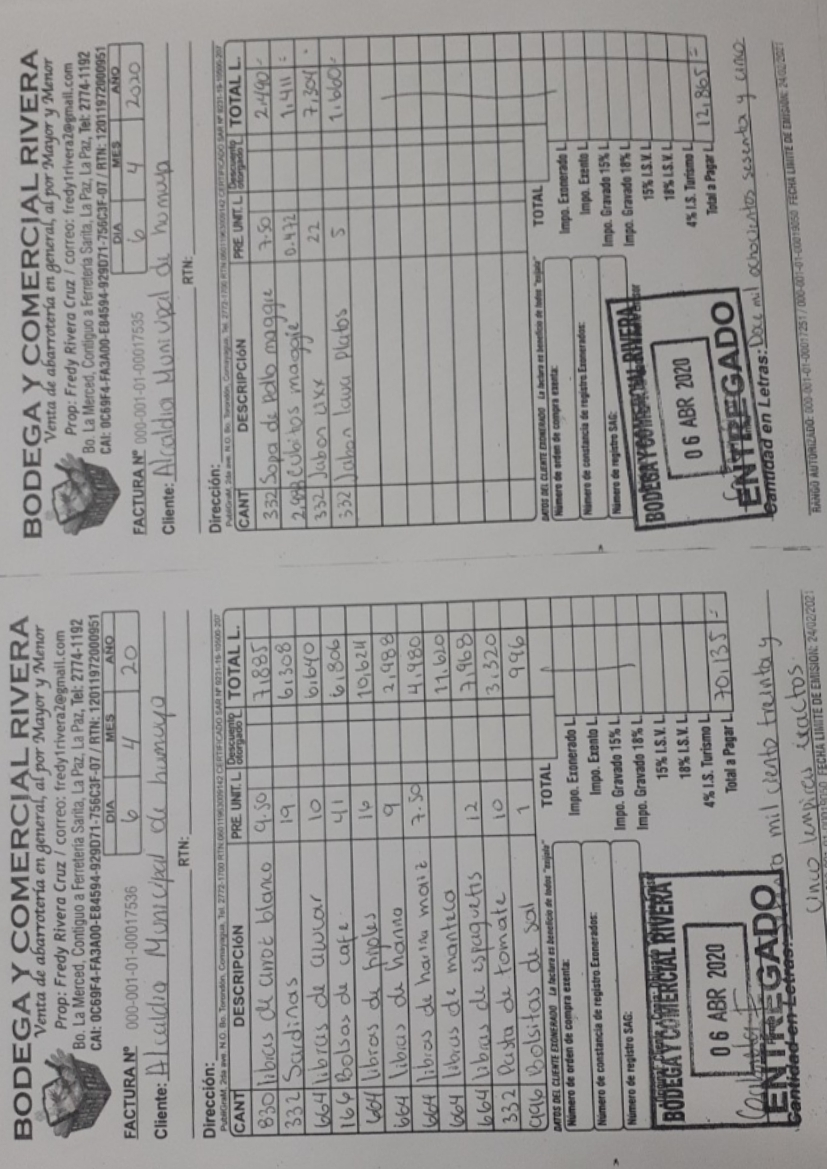 BODEGA Y COMERCIAL RIVERA
Venta de abarrotería en general, al por Mayor y Menor
Prop: Fredy Rivera Cruz / correo: fredy1rivera2@gmail.com
Bo. La Merced, Contiguo a Ferretería Sarita, La Paz, La Paz, Tel: 2774-1192
CAI: 0C69F4-FA3A00-E84594-929D71-756C3F-07 / RTN: 12011972000951
DIA MES AÑO
FACTURA Nº 000-001-01-00017536 6 4 20
Cliente: Alcaldia Municipal de humuya
RTN:
Dirección:
CANT DESCRIPCIÓN PRE. UNIT. L Descuento otorgado L TOTAL L.
830 libras de arroz blanco 9.50 7,885
332 Sardinas 19 6,308
664 libras de azucar 10 6,640
166 Bolsas de cafe 41 6,806
664 libras de frijoles 16 10,624
664 libras de harina 9 2,988
664 libras de harina maiz 7.50 4,980
664 libras de manteca 11,620
664 libras de espaguetis 12 7,968
332 Pasta de tomate 10 3,320
996 Bolsitas de sal 1 996
DATOS DEL CLIENTE EXONERADO La factura es beneficio de todos "exíjala" TOTAL
Número de orden de compra exenta: Impo. Exonerado L
Impo. Exento L
Número de constancia de registro Exonerados: Impo. Gravado 15% L
Impo. Gravado 18% L
Número de registro SAG: 15% I.S.V. L
18% I.S.V. L
4% I.S. Turismo L
Total a Pagar L 70,135=
BODEGA Y COMERCIAL RIVERA
06 ABR 2020
ENTREGADO
Cantidad en Letras: mil ciento treinta y
cinco lempiras exactos.
FECHA LIMITE DE EMISIÓN: 24/02/2021
BODEGA Y COMERCIAL RIVERA
Venta de abarrotería en general, al por Mayor y Menor
Prop: Fredy Rivera Cruz / correo: fredy1rivera2@gmail.com
Bo. La Merced, Contiguo a Ferretería Sarita, La Paz, La Paz, Tel: 2774-1192
CAI: 0C69F4-FA3A00-E84594-929D71-756C3F-07 / RTN: 12011972000951
DIA MES AÑO
FACTURA Nº 000-001-01-00017535 6 4 2020
Cliente: Alcaldia Municipal de humuya
RTN:
Dirección:
CANT DESCRIPCIÓN PRE. UNIT. L Descuento otorgado L TOTAL L.
332 Sopa de Pollo maggie 7.50 2,490
2,988 Cubitos maggie 0.472 1,411
332 Jabon uxx 22 7,304
332 Jabon lava platos 5 1,660
DATOS DEL CLIENTE EXONERADO La factura es beneficio de todos "exíjala" TOTAL
Número de orden de compra exenta: Impo. Exonerado L
Impo. Exento L
Número de constancia de registro Exonerados: Impo. Gravado 15% L
Impo. Gravado 18% L
Número de registro SAG: 15% I.S.V. L
18% I.S.V. L
4% I.S. Turismo L
Total a Pagar L 12,865=
BODEGA Y COMERCIAL RIVERA
06 ABR 2020
ENTREGADO
Cantidad en Letras: Doce mil ochocientos sesenta y cinco
RANGO AUTORIZADO: 000-001-01-00017251 / 000-001-01-00019050 FECHA LIMITE DE EMISIÓN: 24/02/2021